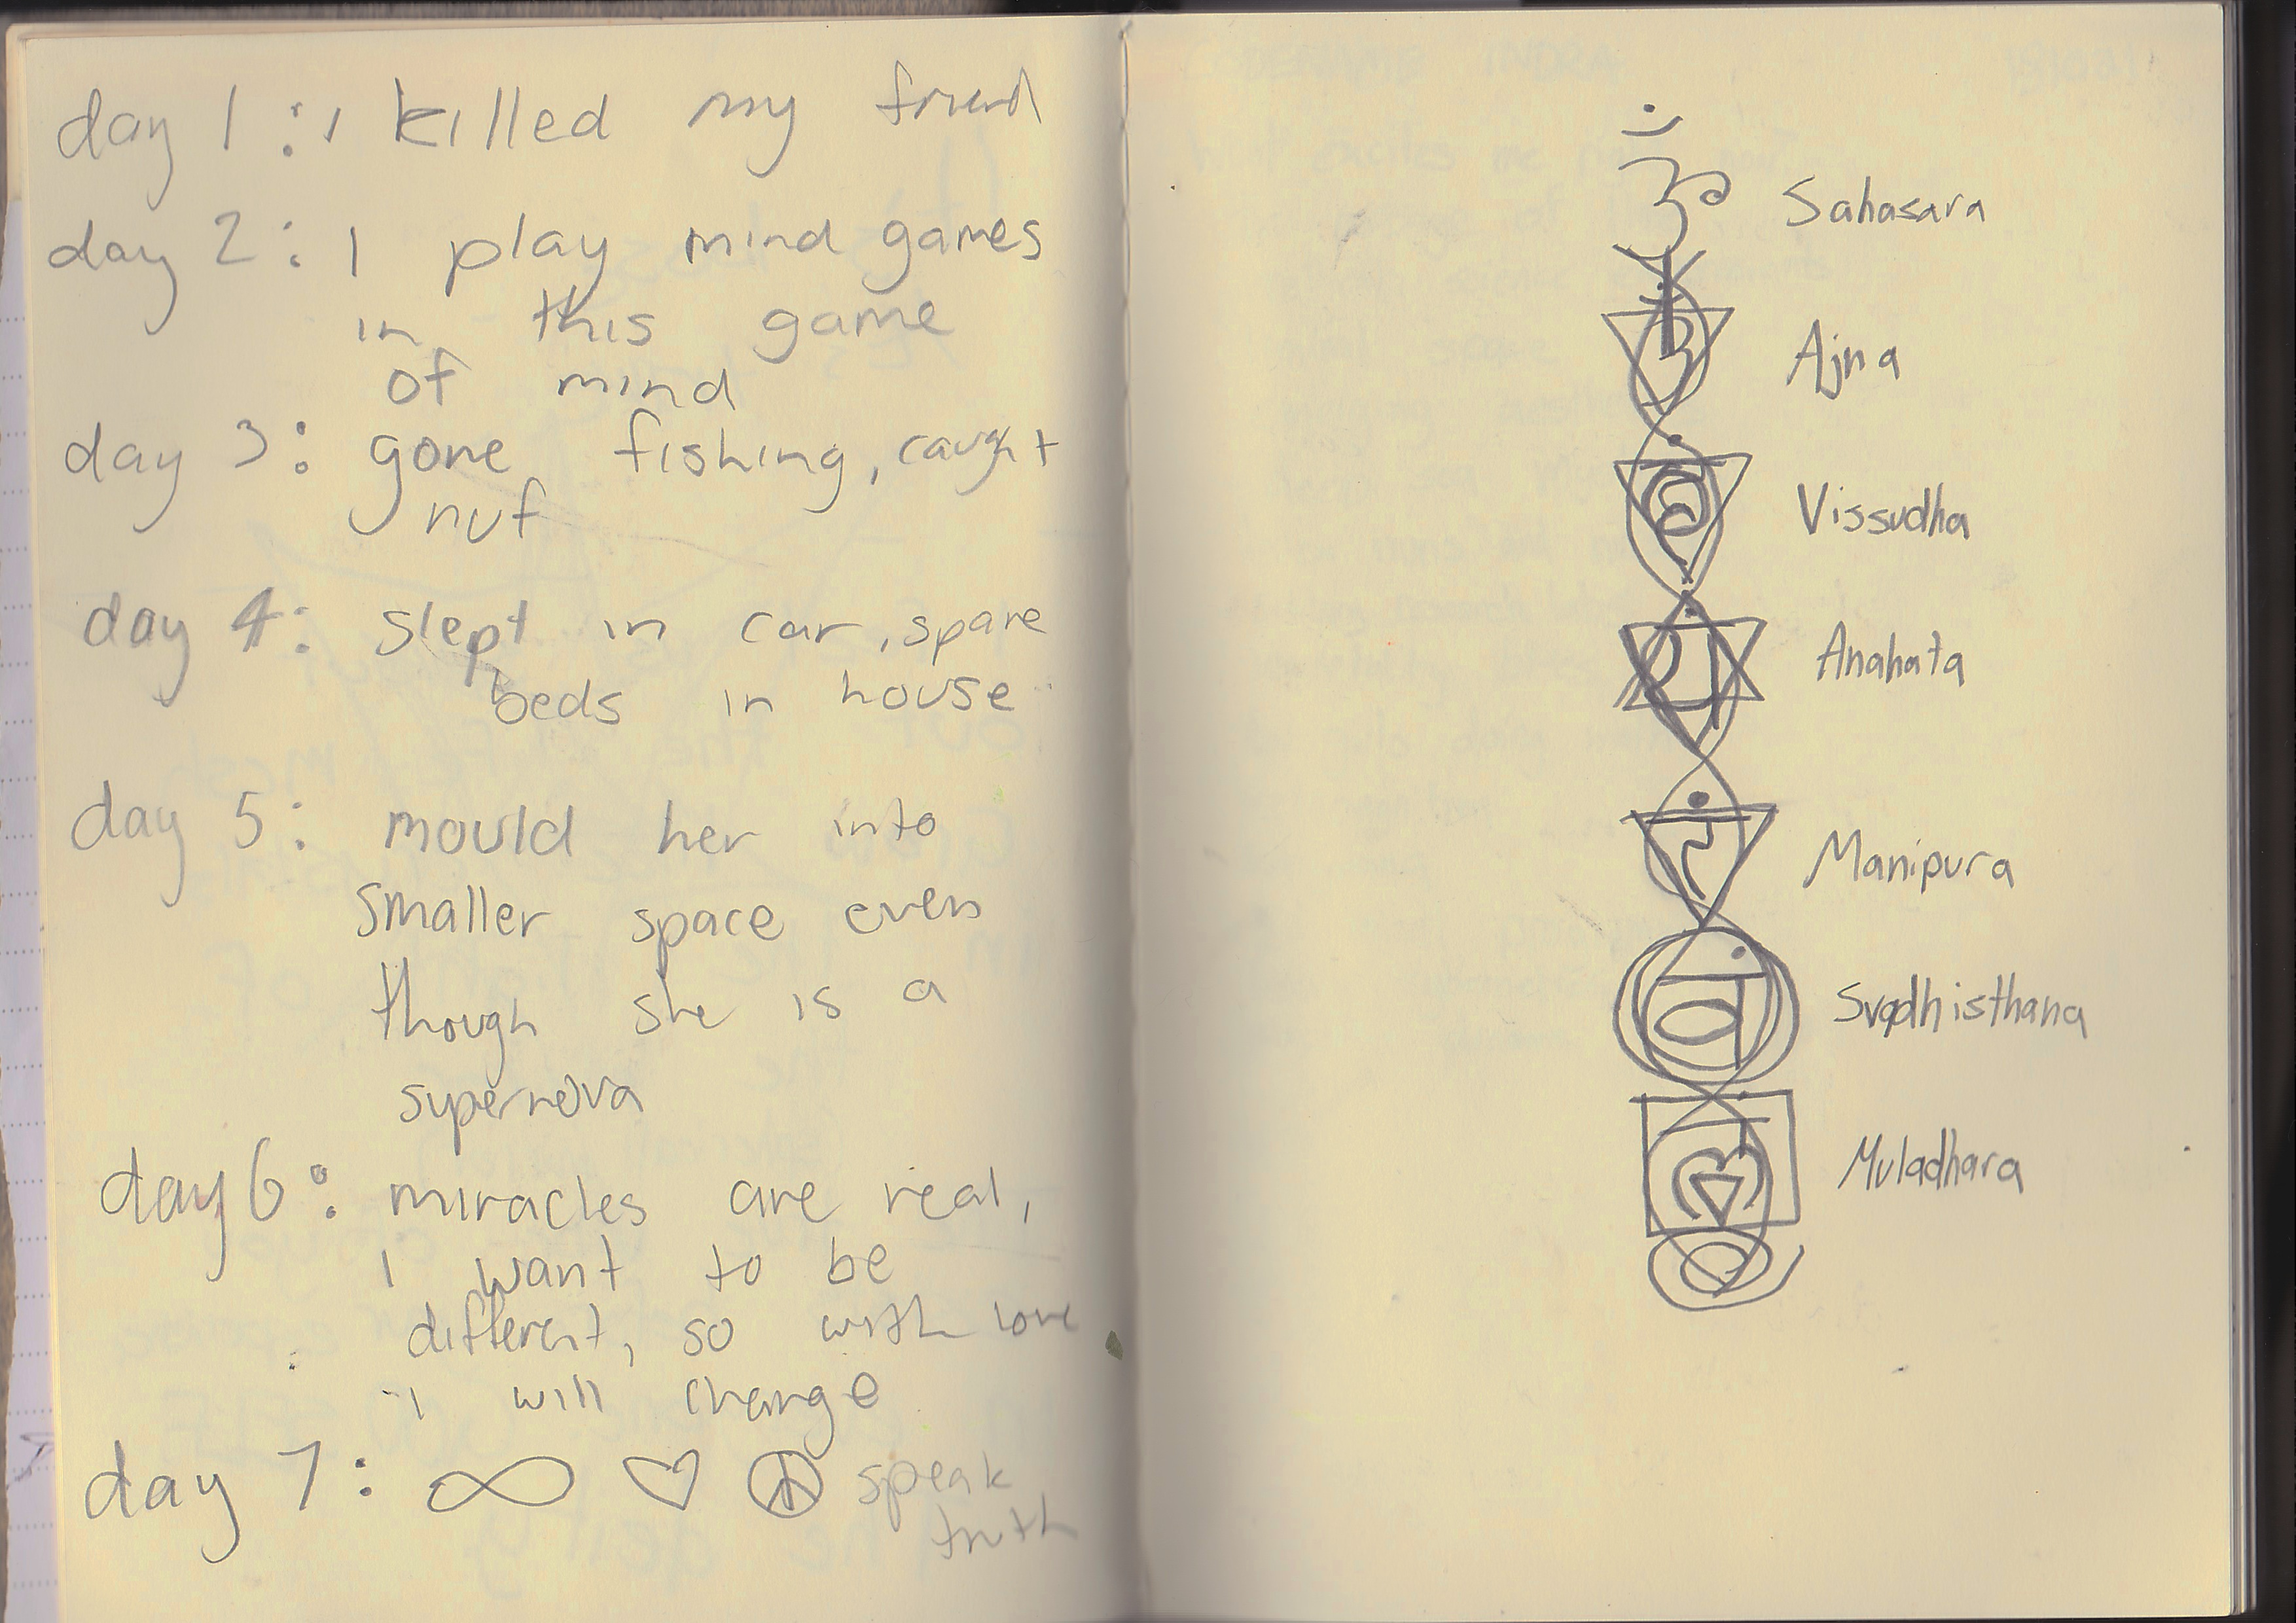 day 1: i killed my friend
day 2: I play mind games
in this game
of mind
day 3: gone fishing, caught
nuf
day 4: slept in car, spare
beds in house
day 5: mould her into
smaller space even
though she is a
supernova
day 6: miracles are real,
I want to be
different, so with love
i will change
day 7: ∞ ♡ ☮ speak
truth
ॐ Sahasara
Ajna
Vissudha
Anahata
Manipura
Svadhisthana
Muladhara